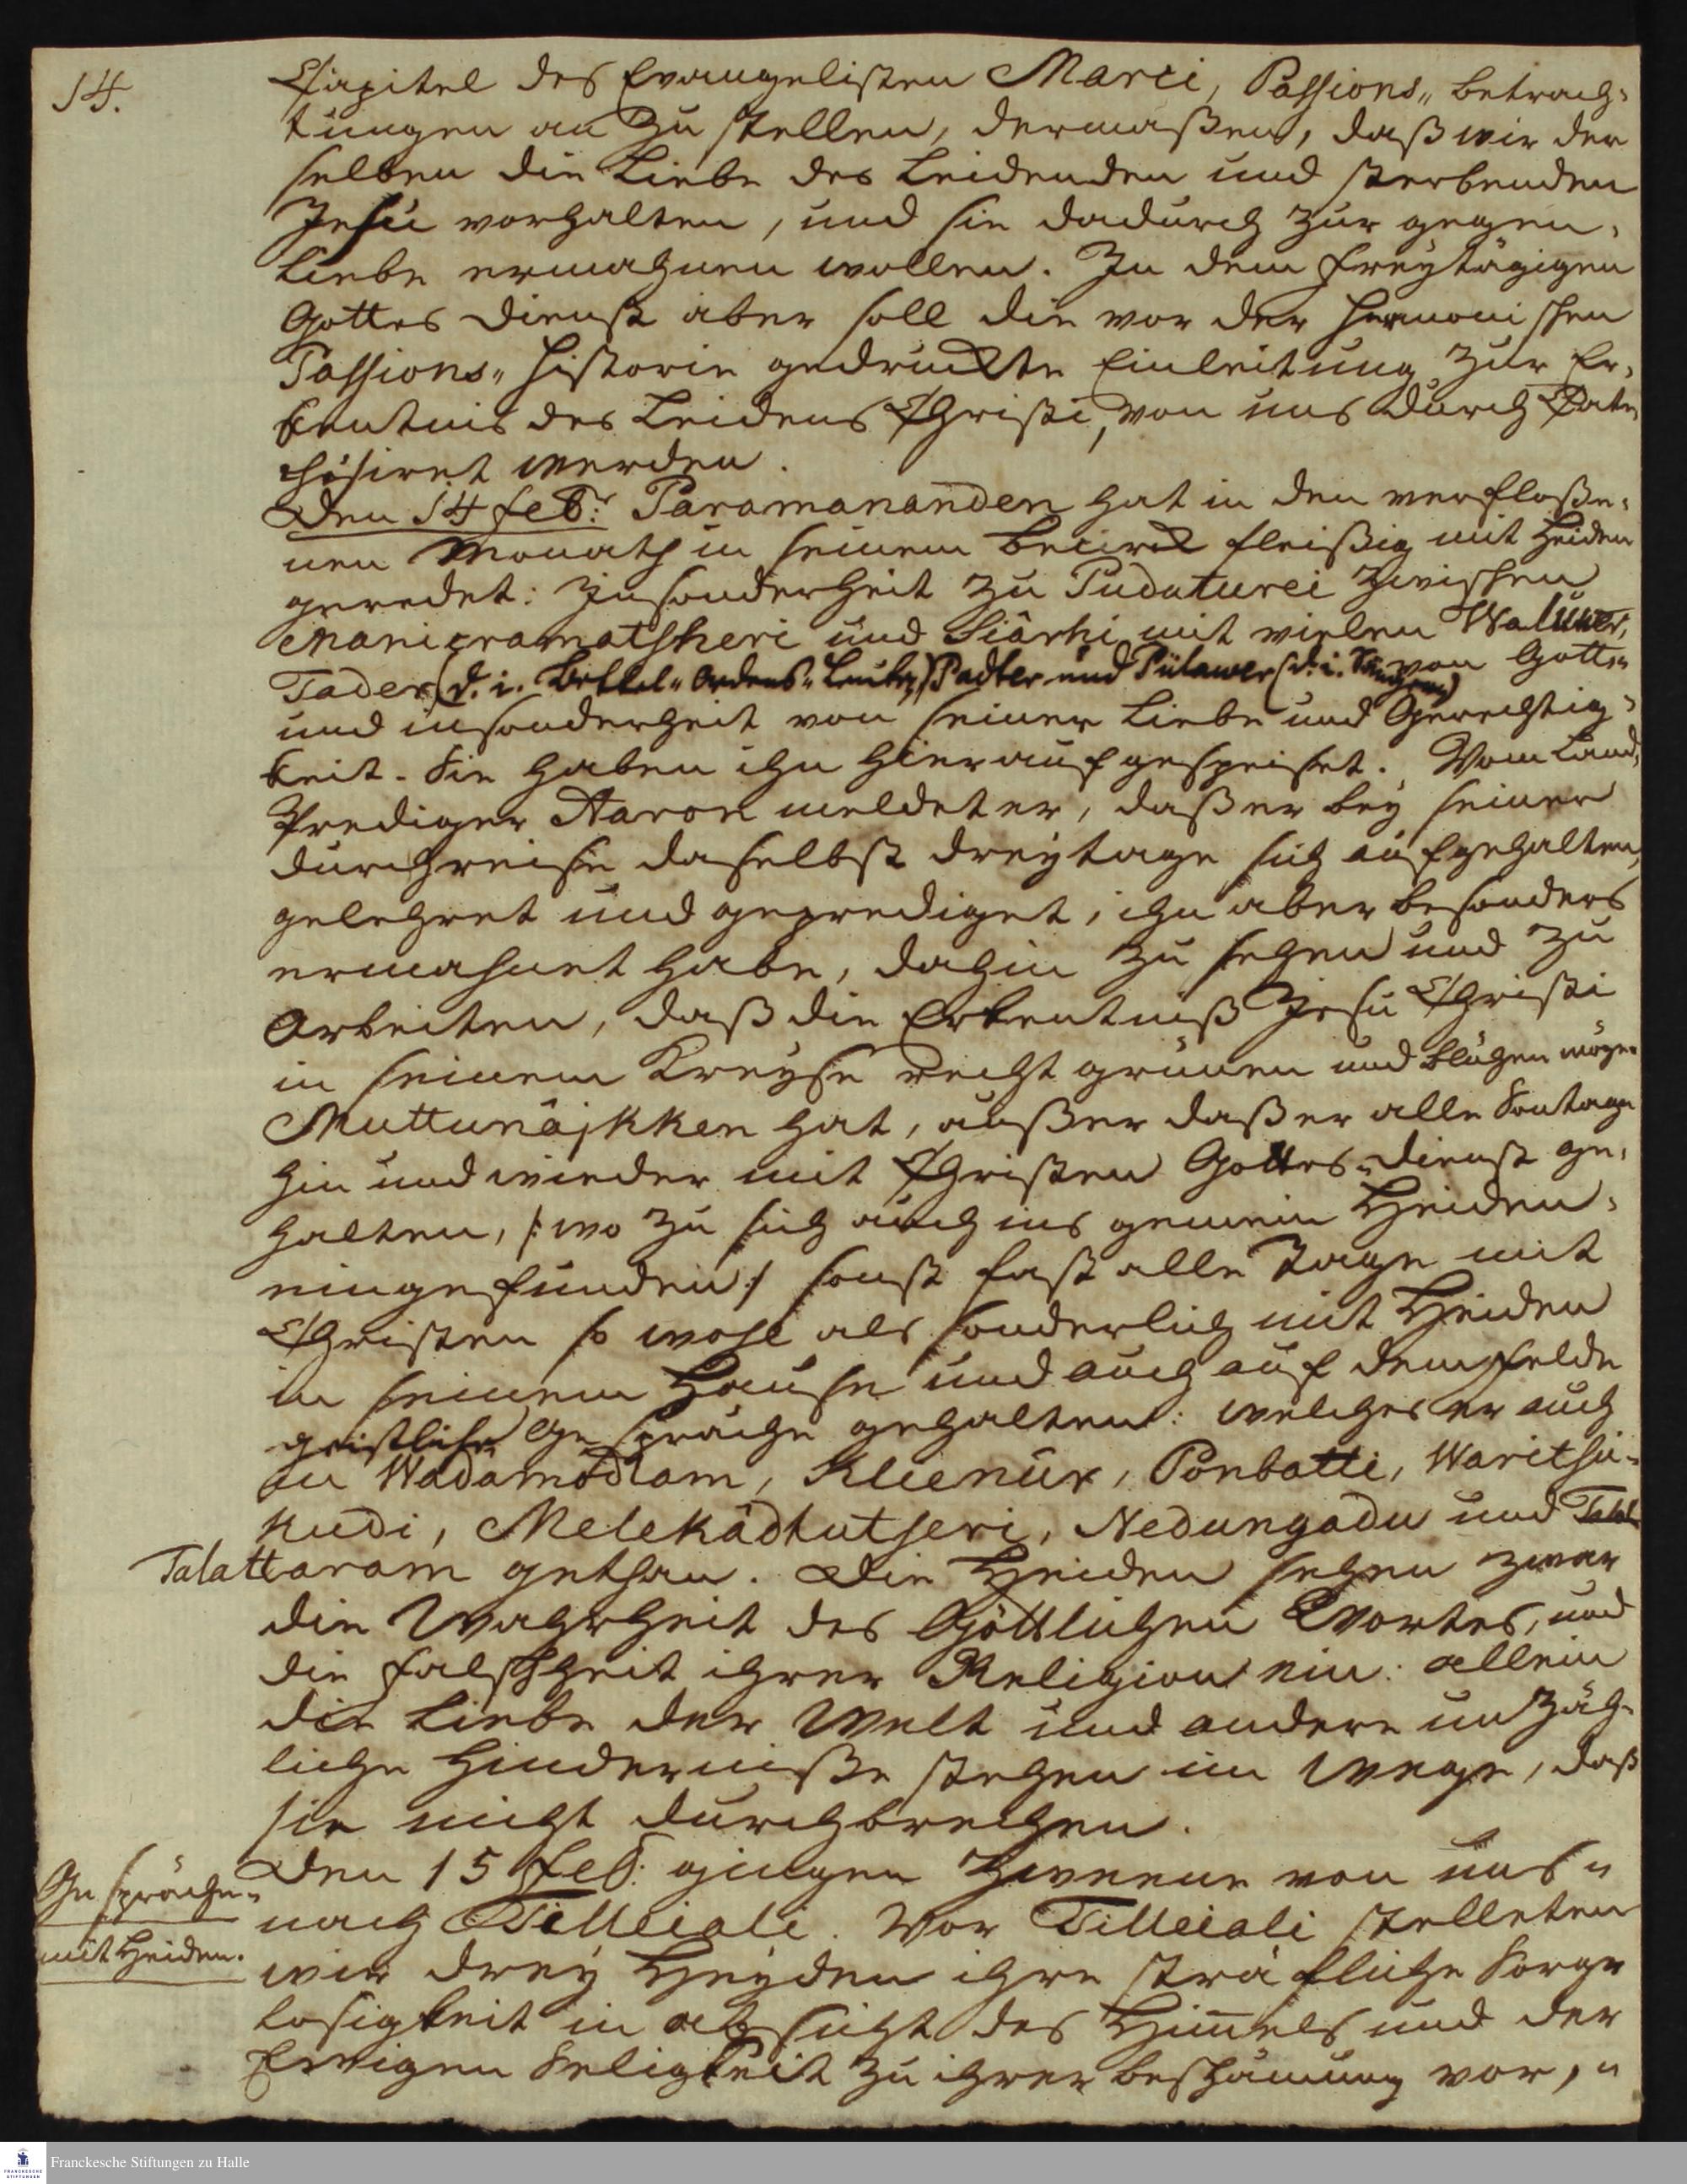 14.
Capitel des Evangelisten Marci, Passions„ betrach„
tungen an zu stellen, dermaßen, daß wir den
selben die Liebe des Leidenden und sterbenden
Jesu vorhalten, und sie dadurch zur gegen„
Liebe ermahnen wollen. In dem freÿtägigen
Gottes Dienst aber soll die vor der Harmonischen
Passions„ Historie gedruckte Einleitung zur Er„
kentnis des Leidens Christi, von uns durch Cate„
chisiret werden.
Den 14 Febr: Paramananden hat in den verfloße„
nen Monath in seinem Becirck fleißig mit Heiden
geredet: Insonderheit zu Puduturei zwischen
Manicramatsheri und Siârhi mit vielen Waluwer,
Tader (d. i. Bettel„ Ordens„ Leute) Padter und Pulawer (d. i. Sängern) von Gott„
und insonderheit von seiner Liebe und Gerechtig„
keit. Sie haben ihn hierauf gespeiset. Vom Land„
Prediger Aaron meldet er, daß er beÿ seiner
durchreise daselbst dreÿ tage sich aufgehalten,
gelehret und geprediget, ihn aber besonders
ermahnet habe, dahin zu sehen und zu
Arbeiten, daß die Erkentniß Jesu Christi
in seinem Kreÿse recht grünen und blühen möge.
Muttunâjkken hat, außer daß er alle Sontage
hin und wieder mit Christen Gottes„ Dienst ge„
halten, /: wo zu sich auch ins gemein Heiden„
eingefunden :/ sonst fast alle Tage mit
Christen so wohl als sonderlich mit Heiden
in seinem Hause und auch auf dem felde
geistliche Gespräche gehalten: welches er auch
zu Wadamodtam, Klienûr, Ponbatti, Waritshi„
kudi, Melekâdhutseri, Nedungadu und
Talattaram gethan. Die Heiden sehen zwar
die Wahrheit des Göttlichen Wortes, und
die falschheit ihrer Religion ein: allein
die Liebe der Welt und andere unzäh„
liche Hinderniße stehen im Wege, daß
sie nicht durchbrechen.
Gespräche„
mit Heiden.
Den 15 Feb: gingen Zweene von uns„
nach Tilleiali. Vor Tilleiali stelleten
wir dreÿ Heÿden ihre sträfliche Sorge
losigkeit in absicht des Himels und der
Ewigen Seligkeit zu ihrer beschämung vor,„
Franckesche Stiftungen zu Halle